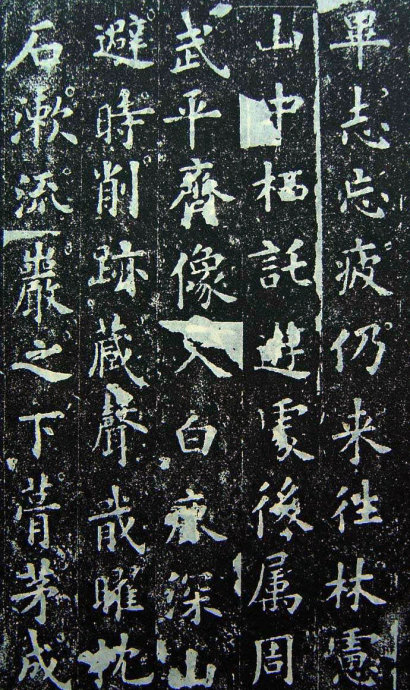 畢志忘疲仍来往林慮
山中栖託遊處後属周
武平齊像入白鹿深山
避時削跡藏聲戢曜枕
石漱流巖之下葺茅成